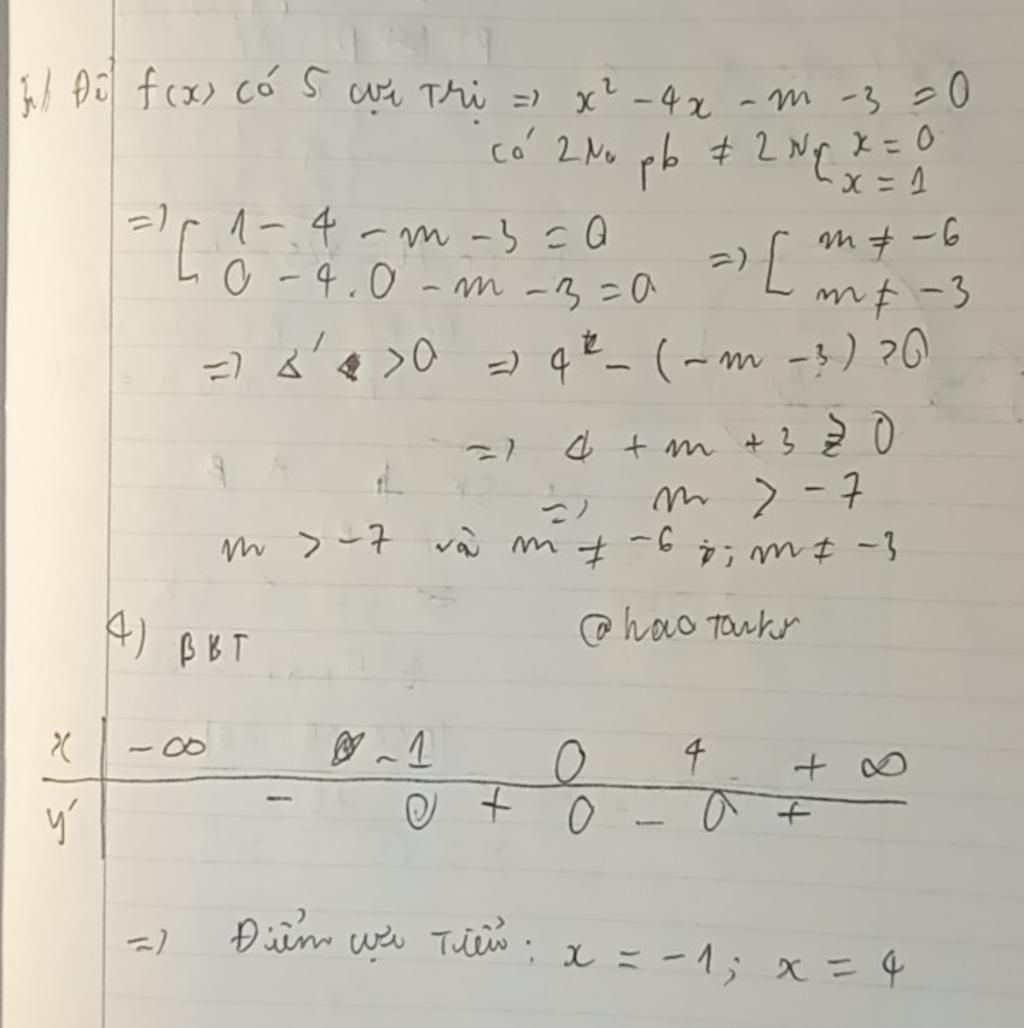 Để f(x) có 5 cực Trị => x² - 4x - m - 3 = 0
có 2 No pb ≠ 2 No [ x = 0
x = 1
=> [ 1 - 4 - m - 3 = 0
0 - 4.0 - m - 3 = 0
=> [ m ≠ -6
m ≠ -3
=> Δ' > 0 => 4 - (-m - 3) > 0
=> 4 + m + 3 ≥ 0
=> m > -7
m > -7 và m ≠ -6 ; m ≠ -3
4) BBT
x | -∞ -1 0 4 +∞
y' | - 0 + 0 - 0 +
=> Điểm cực Tiểu : x = -1 ; x = 4